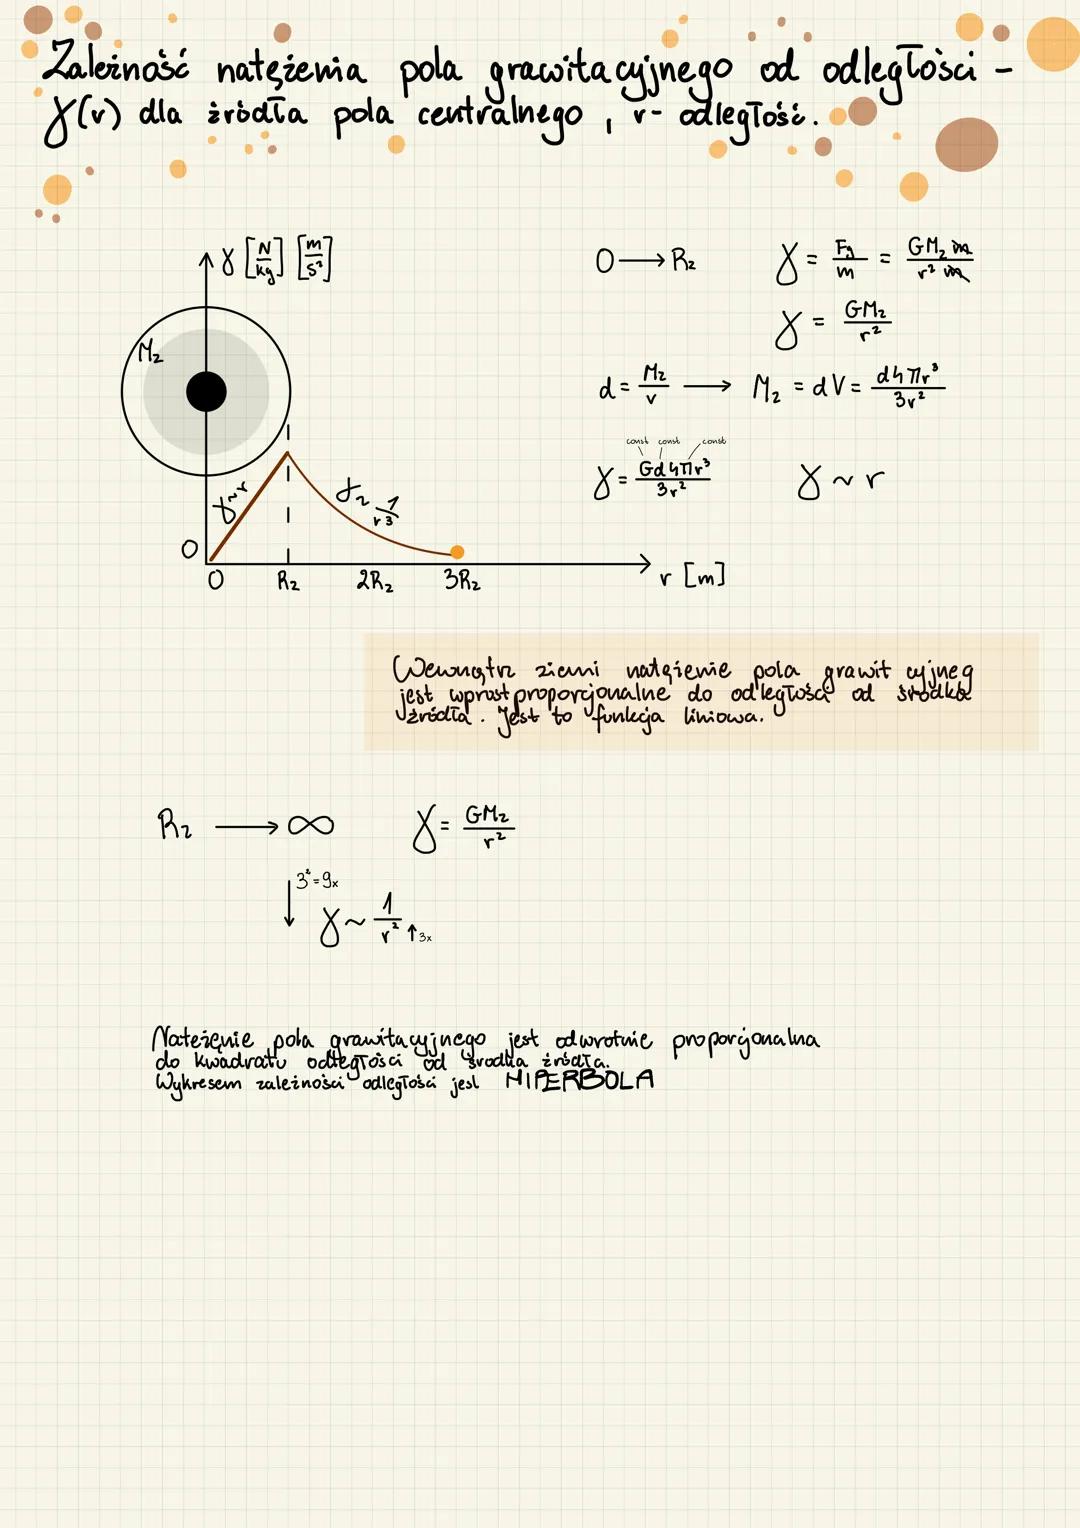 Zależność natężenia pola grawitacyjnego od odległości -
γ(r) dla źródła pola centralnego, r- odległość.
γ [N/kg] [m/s²]
0 → Rz γ = Fg/m = GMz m/r² m
γ = GMz/r²
Mz
d = Mz/V → Mz = dV = d4πr³/3r²
const const const
γ = Gd4πr³/3r² γ ~ r
γ~r
γ~ 1/r3
0
0 Rz 2Rz 3Rz r [m]
Wewnątrz ziemi natężenie pola grawit cyjneg
jest wprost proporcjonalne do odległości od środka
źródła. Jest to funkcja liniowa.
Rz → ∞ γ = GMz/r²
↓ 3²=9x
γ ~ 1/r² ↑3x
Nateżęnie pola grawitacyjnego jest odwrotnie proporcjonalna
do kwadratu odległości od środka źródła.
Wykresem zależności odległości jest HIPERBOLA